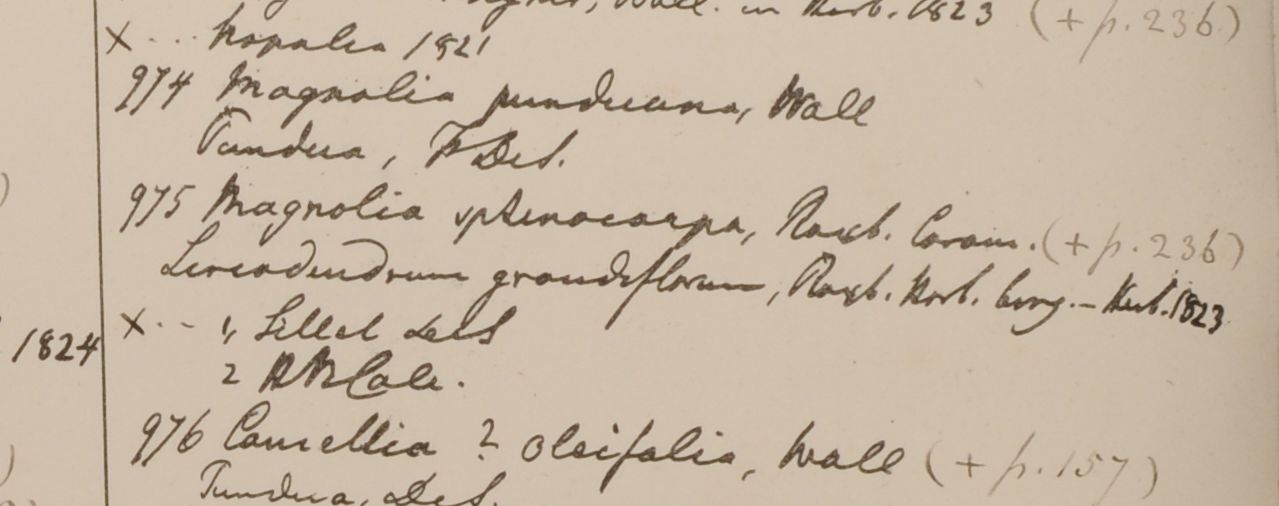 Wall. in Herb. 1823 (+ p. 236.)
X ... Napalia 1821
974 Magnolia punduana, Wall
Pundua, F. De S.
975 Magnolia sphenocarpa, Roxb. Corom. (+ p. 236)
Liriodendrum grandiflorum, Roxb. Hort. beng. – Herb. 1823
X ... 1, Sillet De S
1824
2 H B Calc.
976 Camellia ? oleifolia, Wall (+ p. 157)
Pundua, De S.